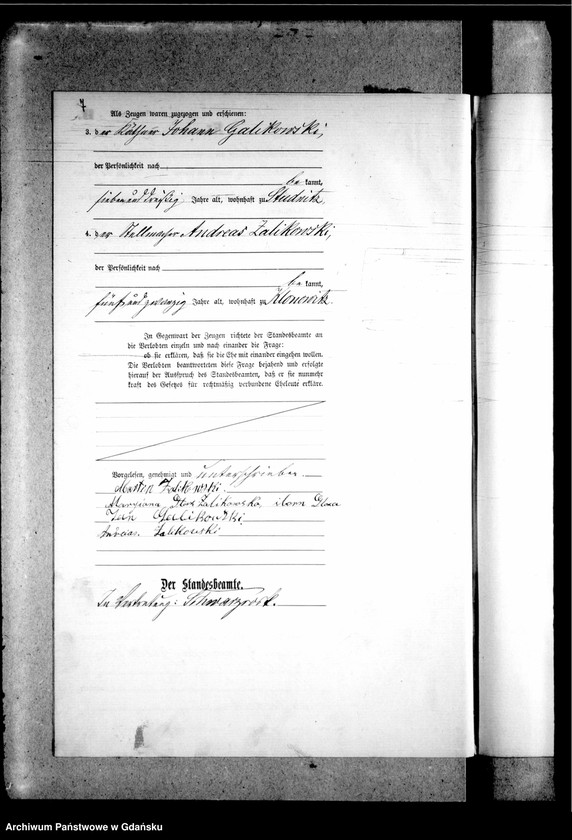 7
Als Zeugen waren zugezogen und erschienen:
3. der Käthner Johann Galikowski,
der Persönlichkeit nach
be kannt,
siebenunddreißig Jahre alt, wohnhaft zu Studnitz,
4. der Stellmacher Andreas Zalikowski,
der Persönlichkeit nach
be kannt,
fünfundzwanzig Jahre alt, wohnhaft zu Klonowitz
In Gegenwart der Zeugen richtete der Standesbeamte an
die Verlobten einzeln und nach einander die Frage:
ob sie erklären, daß sie die Ehe mit einander eingehen wollen.
Die Verlobten beantworteten diese Frage bejahend und erfolgte
hierauf der Ausspruch des Standesbeamten, daß er sie nunmehr
kraft des Gesetzes für rechtmäßig verbundene Eheleute erkläre.
Vorgelesen, genehmigt und unterschrieben
Martin Zalikowski
Maryjana Zalikowska,
Jan Galikowski
Andreas Zalikowski
Der Standesbeamte.
In Vertretung:
Archiwum Państwowe w Gdańsku